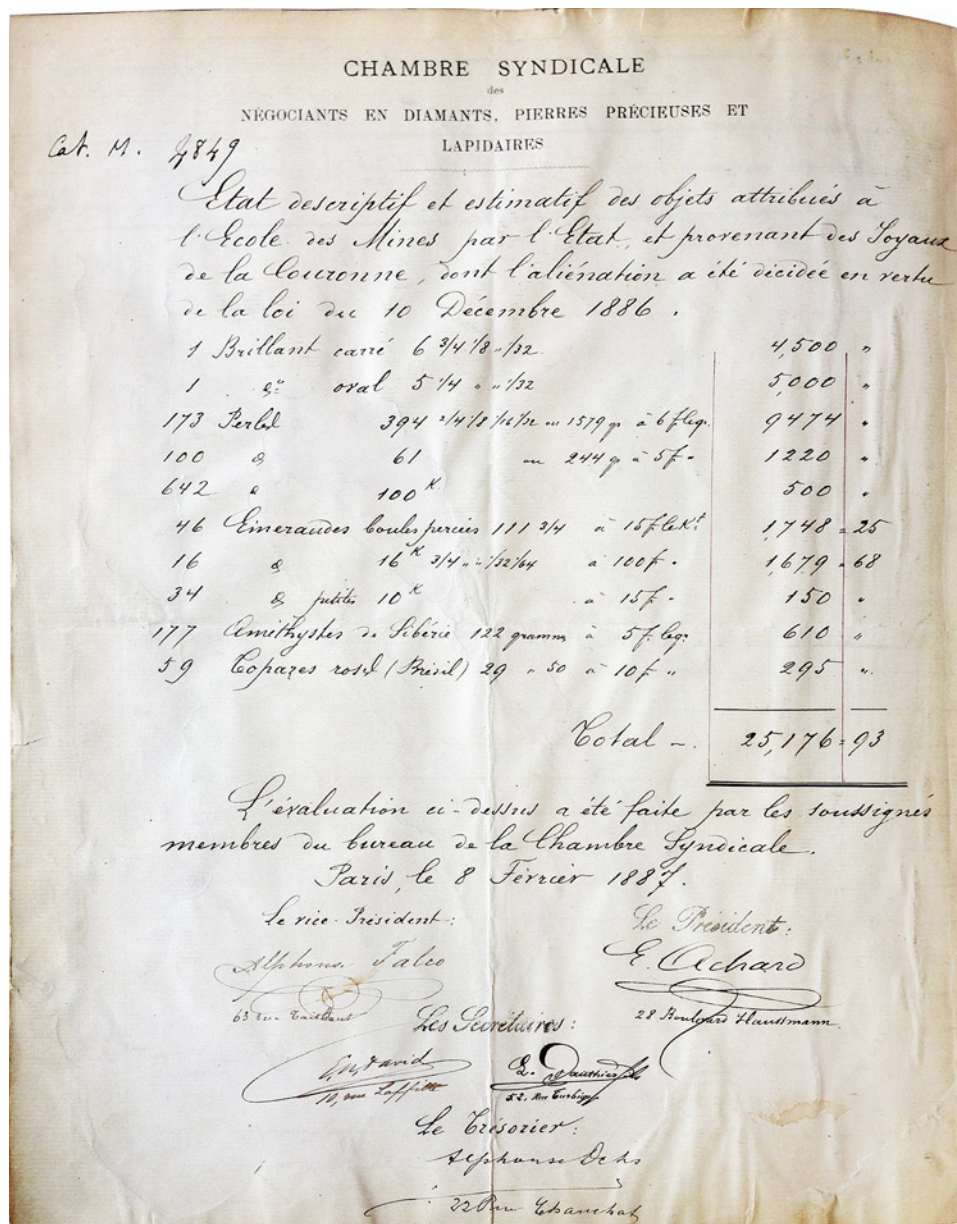 CHAMBRE SYNDICALE
des
NÉGOCIANTS EN DIAMANTS, PIERRES PRÉCIEUSES ET
LAPIDAIRES
Cat. M. 4849
Etat descriptif et estimatif des objets attribués à
l'Ecole des Mines par l'Etat, et provenant des Joyaux
de la Couronne, dont l'aliénation a été décidée en vertu
de la loi du 10 Décembre 1886.
1 Brillant carré 6 3/4 1/8 " 1/32 4,500 "
1 do oval 5 1/4 " " 1/32 5,000 "
173 Perles 394 2/4 1/8 1/16 1/32 ou 1579 g à 6 f le g. 9474 "
100 d 61 ou 244 g à 5 f " 1220 "
642 d 100 K 500 "
46 Emeraudes boules percées 111 3/4 à 15 f le Kt 1,748 = 25
16 d 16 K 3/4 " " 1/32 1/64 à 100 f " 1,679 = 68
34 d petites 10 K à 15 f " 150 "
177 Améthystes de Sibérie 122 grammes à 5 f. le gr. 610 "
59 Topazes roses (Brésil) 29 " 50 à 10 f " 295 "
Total - 25,176 = 93
L'évaluation ci-dessus a été faite par les soussignés
membres du bureau de la Chambre Syndicale.
Paris, le 8 Février 1887.
Le vice-Président : Le Président :
Alphonse Falco E. Achard
63 rue Taitbout 28 Boulevard Haussmann.
Les Secrétaires :
David
10, rue Laffitte 52. Rue Turbigo
Le Trésorier :
Alphonse Ochs
22 Rue Chauchat